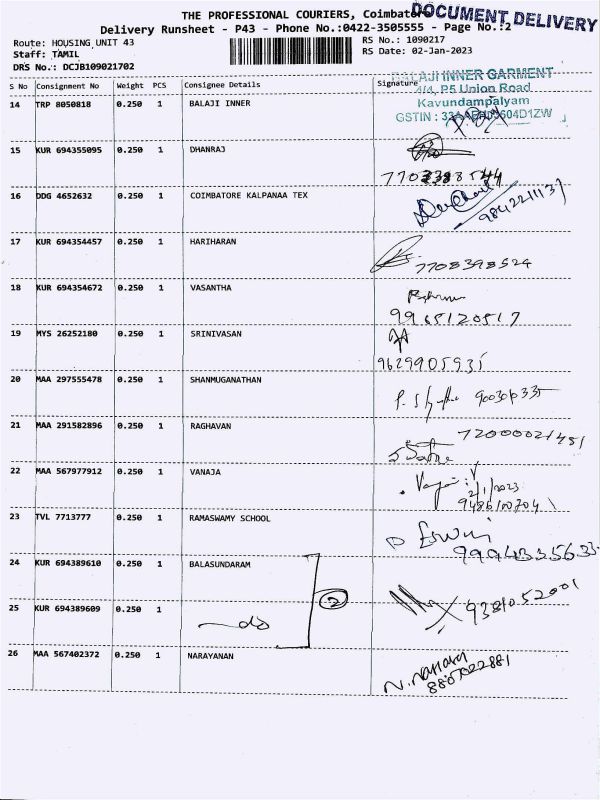 THE PROFESSIONAL COURIERS, Coimbatore
DOCUMENT DELIVERY
Delivery Runsheet - P43 - Phone No.:0422-3505555 - Page No.:2
Route: HOUSING UNIT 43
RS No.: 1090217
Staff: TAMIL
RS Date: 02-Jan-2023
DRS No.: DCJB109021702
S No Consignment No Weight PCS Consignee Details Signature
BALAJI INNER GARMENT
4/4, P5 Union Road
Kavundampalyam
14 TRP 8050818 0.250 1 BALAJI INNER
15 KUR 694355095 0.250 1 DHANRAJ
16 DDG 4652632 0.250 1 COIMBATORE KALPANAA TEX
9842221137
17 KUR 694354457 0.250 1 HARIHARAN
7708398524
18 KUR 694354672 0.250 1 VASANTHA
9965120517
19 MYS 26252180 0.250 1 SRINIVASAN
9629905935
20 MAA 297555478 0.250 1 SHANMUGANATHAN
21 MAA 291582896 0.250 1 RAGHAVAN
22 MAA 567977912 0.250 1 VANAJA
2/1/2023
23 TVL 7713777 0.250 1 RAMASWAMY SCHOOL
24 KUR 694389610 0.250 1 BALASUNDARAM
2
9381052001
25 KUR 694389609 0.250 1 do
26 MAA 567402372 0.250 1 NARAYANAN
8807022881